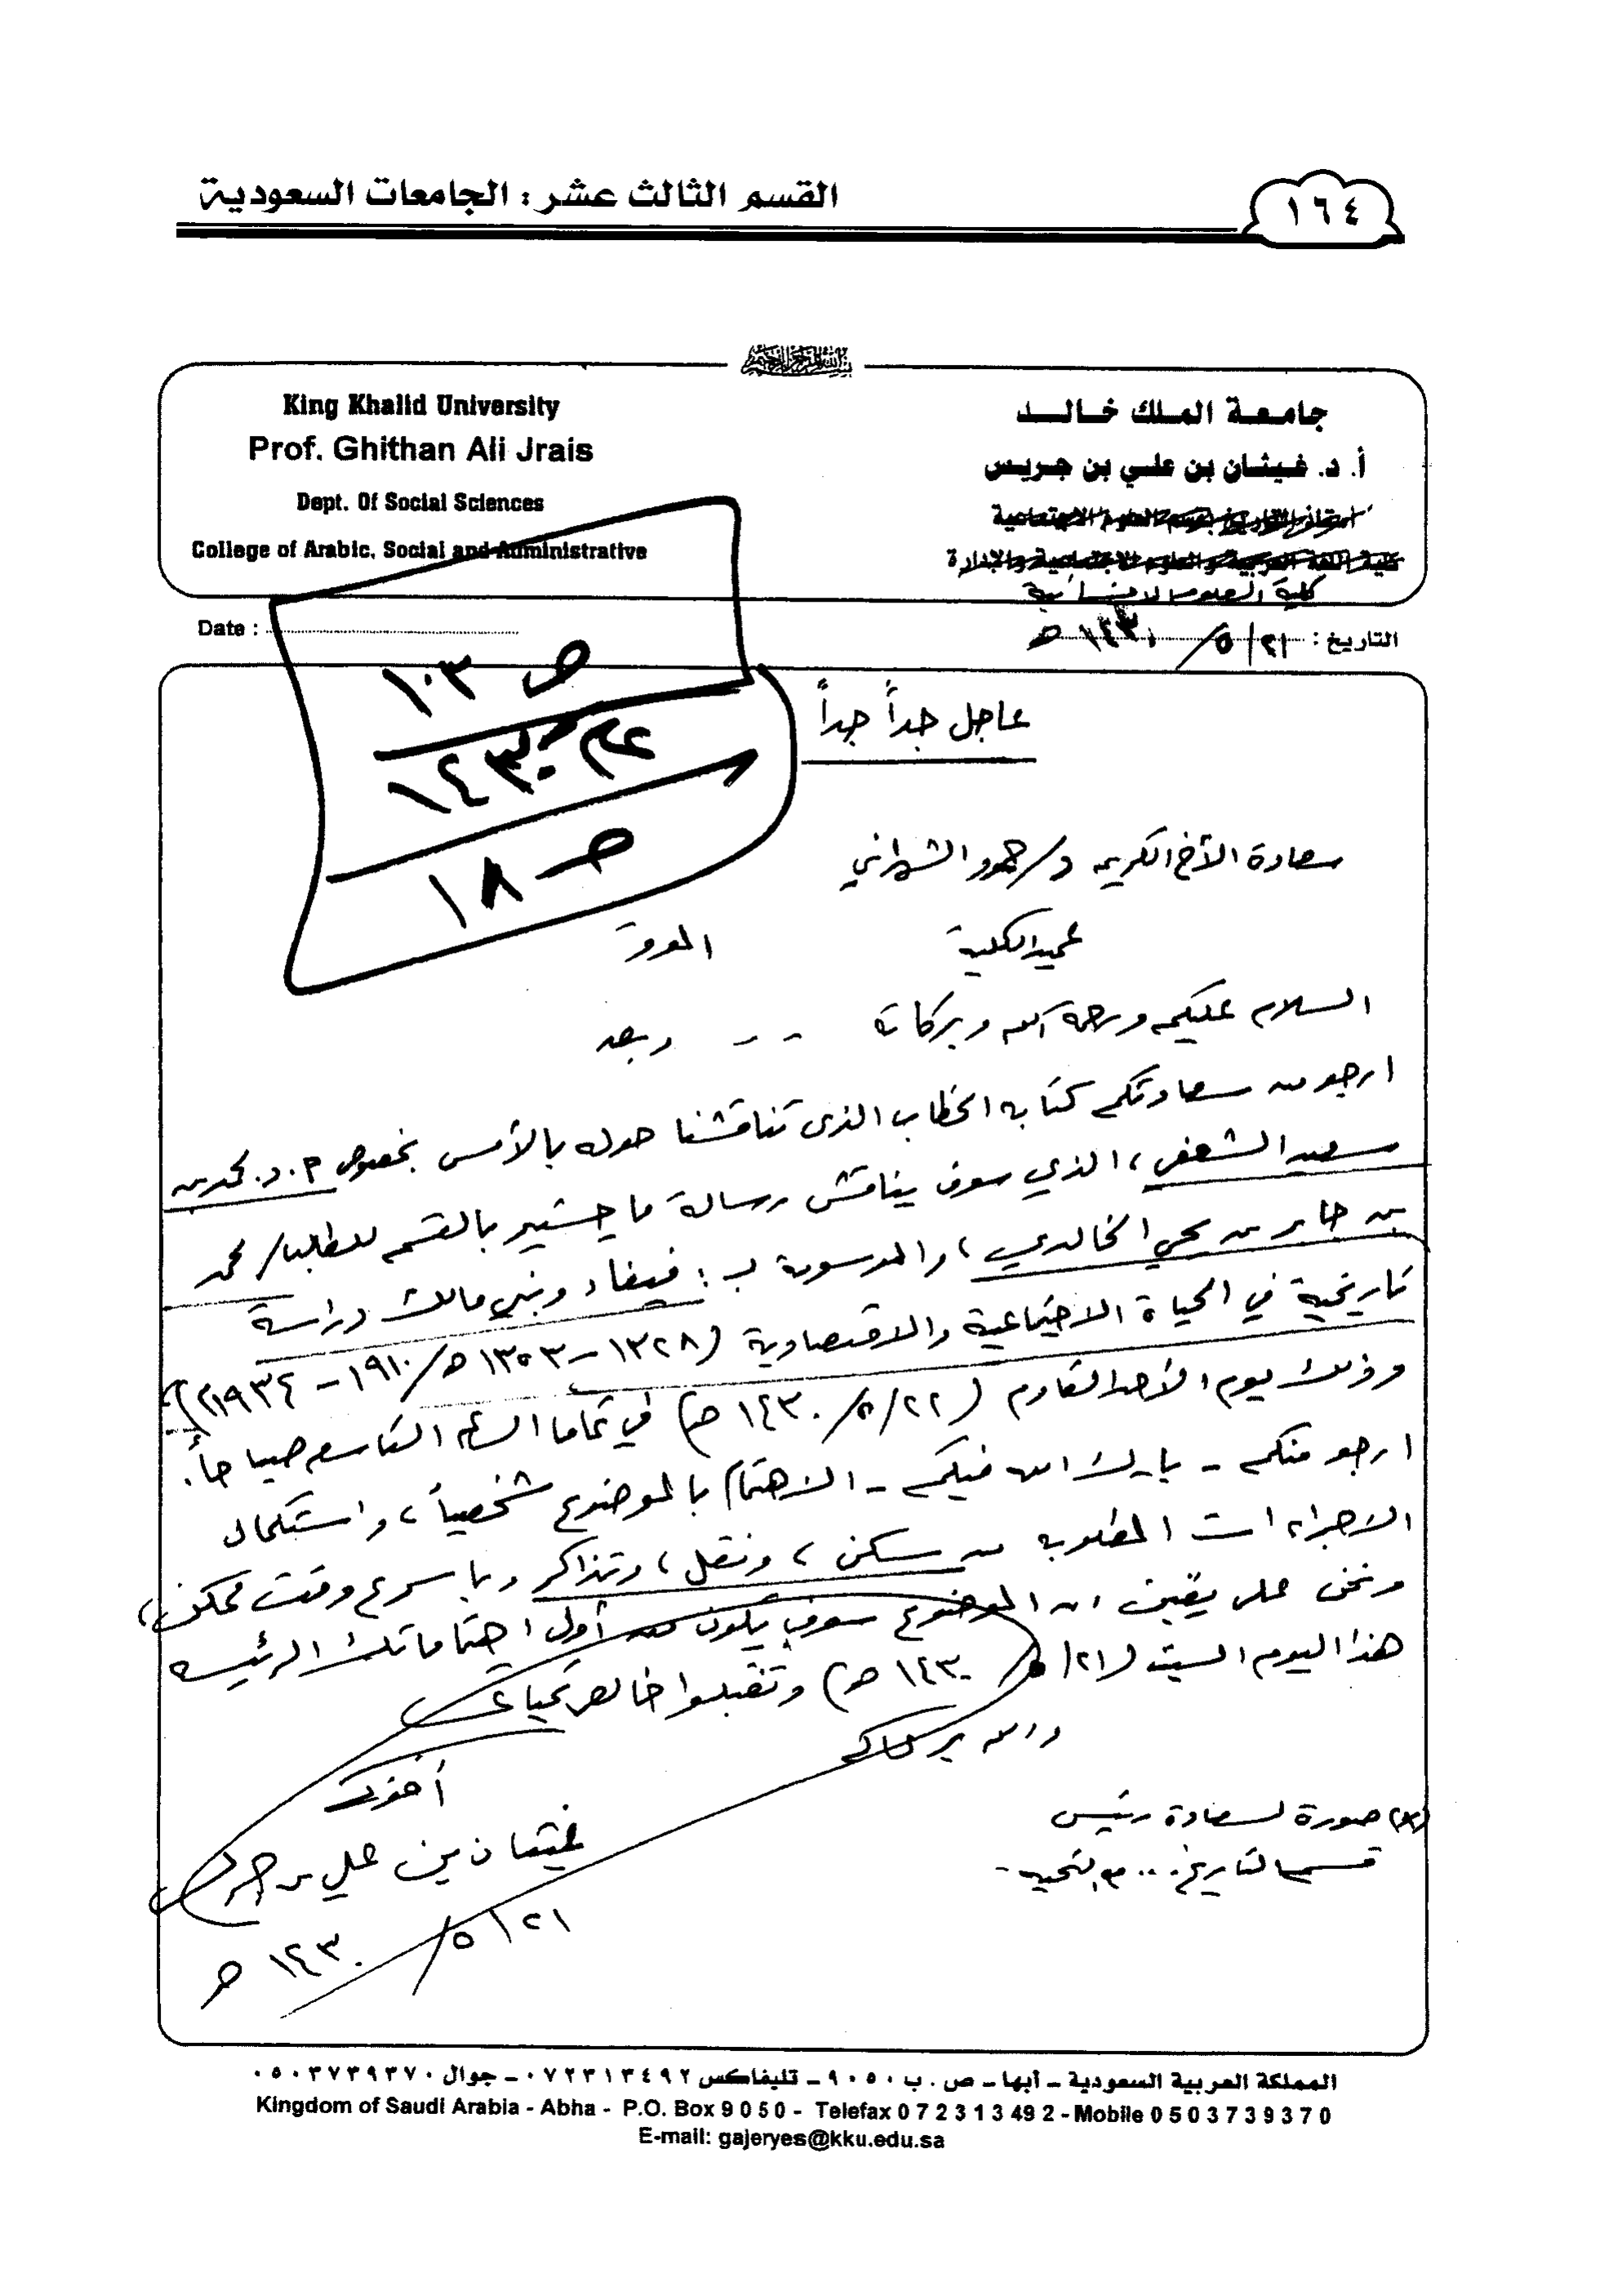 القسم الثالث عشر : الجامعات السعودية
١٦٤
بسم الله الرحمن الرحيم
King Khalid University
Prof. Ghithan Ali Jrais
Dept. Of Social Sciences
College of Arabic, Social and Administrative
جامعة الملك خالد
أ. د. غيثان بن علي بن جريس
أستاذ التاريخ بقسم العلوم الاجتماعية
كلية اللغة العربية والعلوم الاجتماعية والإدارة
كلية العلوم الإنسانية
Date :
التاريخ : ٢١/ ٥/ ١٤٣٠ هـ
ص ١٠٣
١٤٣٠
ص ١٨
عاجل جداً جداً
سعادة الأخ الكريم د/ حمود الشهراني
عميد الكلية الموقر
السلام عليكم ورحمة الله وبركاته - - وبعد
ارجو من سعادتكم كتابة الخطاب الذي تناقشنا حوله بالأمس بخصوص أ.د. محمد بن
سعيد الشعفي ، الذي سوف يناقش رسالة ماجستير بالقسم للطالب/ محمد
بن جابر بن يحي الخالدي ، والموسومة بـ : فيفاء وبني مالك دراسة
تاريخية في الحياة الاجتماعية والاقتصادية (١٣٢٨ – ١٣٥٣هـ/ ١٩١٠ – ١٩٣٤م)
وذلك يوم الأحد القادم (٢٢/ ٥/ ١٤٣٠هـ) في تمام الساعة التاسعة صباحاً.
ارجو منكم - بارك الله فيكم - الاهتمام بالموضوع شخصياً ، واستكمال
الاجراءات المطلوبه من سكن ، ونقل ، وتذاكر وبأسرع وقت ممكن ،
ونحن على يقين ان الموضوع سوف يكون أول اهتماماتك الرئيسه
هذا اليوم السبت (٢١/ ٥/ ١٤٣٠هـ) وتقبلوا خالص تحياتي
والله يرعاكم
أخوك
غيثان بن علي بن جريس
٢١/ ٥/ ١٤٣٠ هـ
(*) صورة لسعادة رئيس
قسم التاريخ .. مع التحية -
المملكة العربية السعودية – أبها – ص . ب ٩٠٥٠ – تليفاكس ٠٧٢٣١٣٤٩٢ – جوال ٠٥٠٣٧٣٩٣٧٠
Kingdom of Saudi Arabia - Abha - P.O. Box 9 0 5 0 - Telefax 0 7 2 3 1 3 49 2 - Mobile 0 5 0 3 7 3 9 3 7 0
E-mail: gajeryes@kku.edu.sa